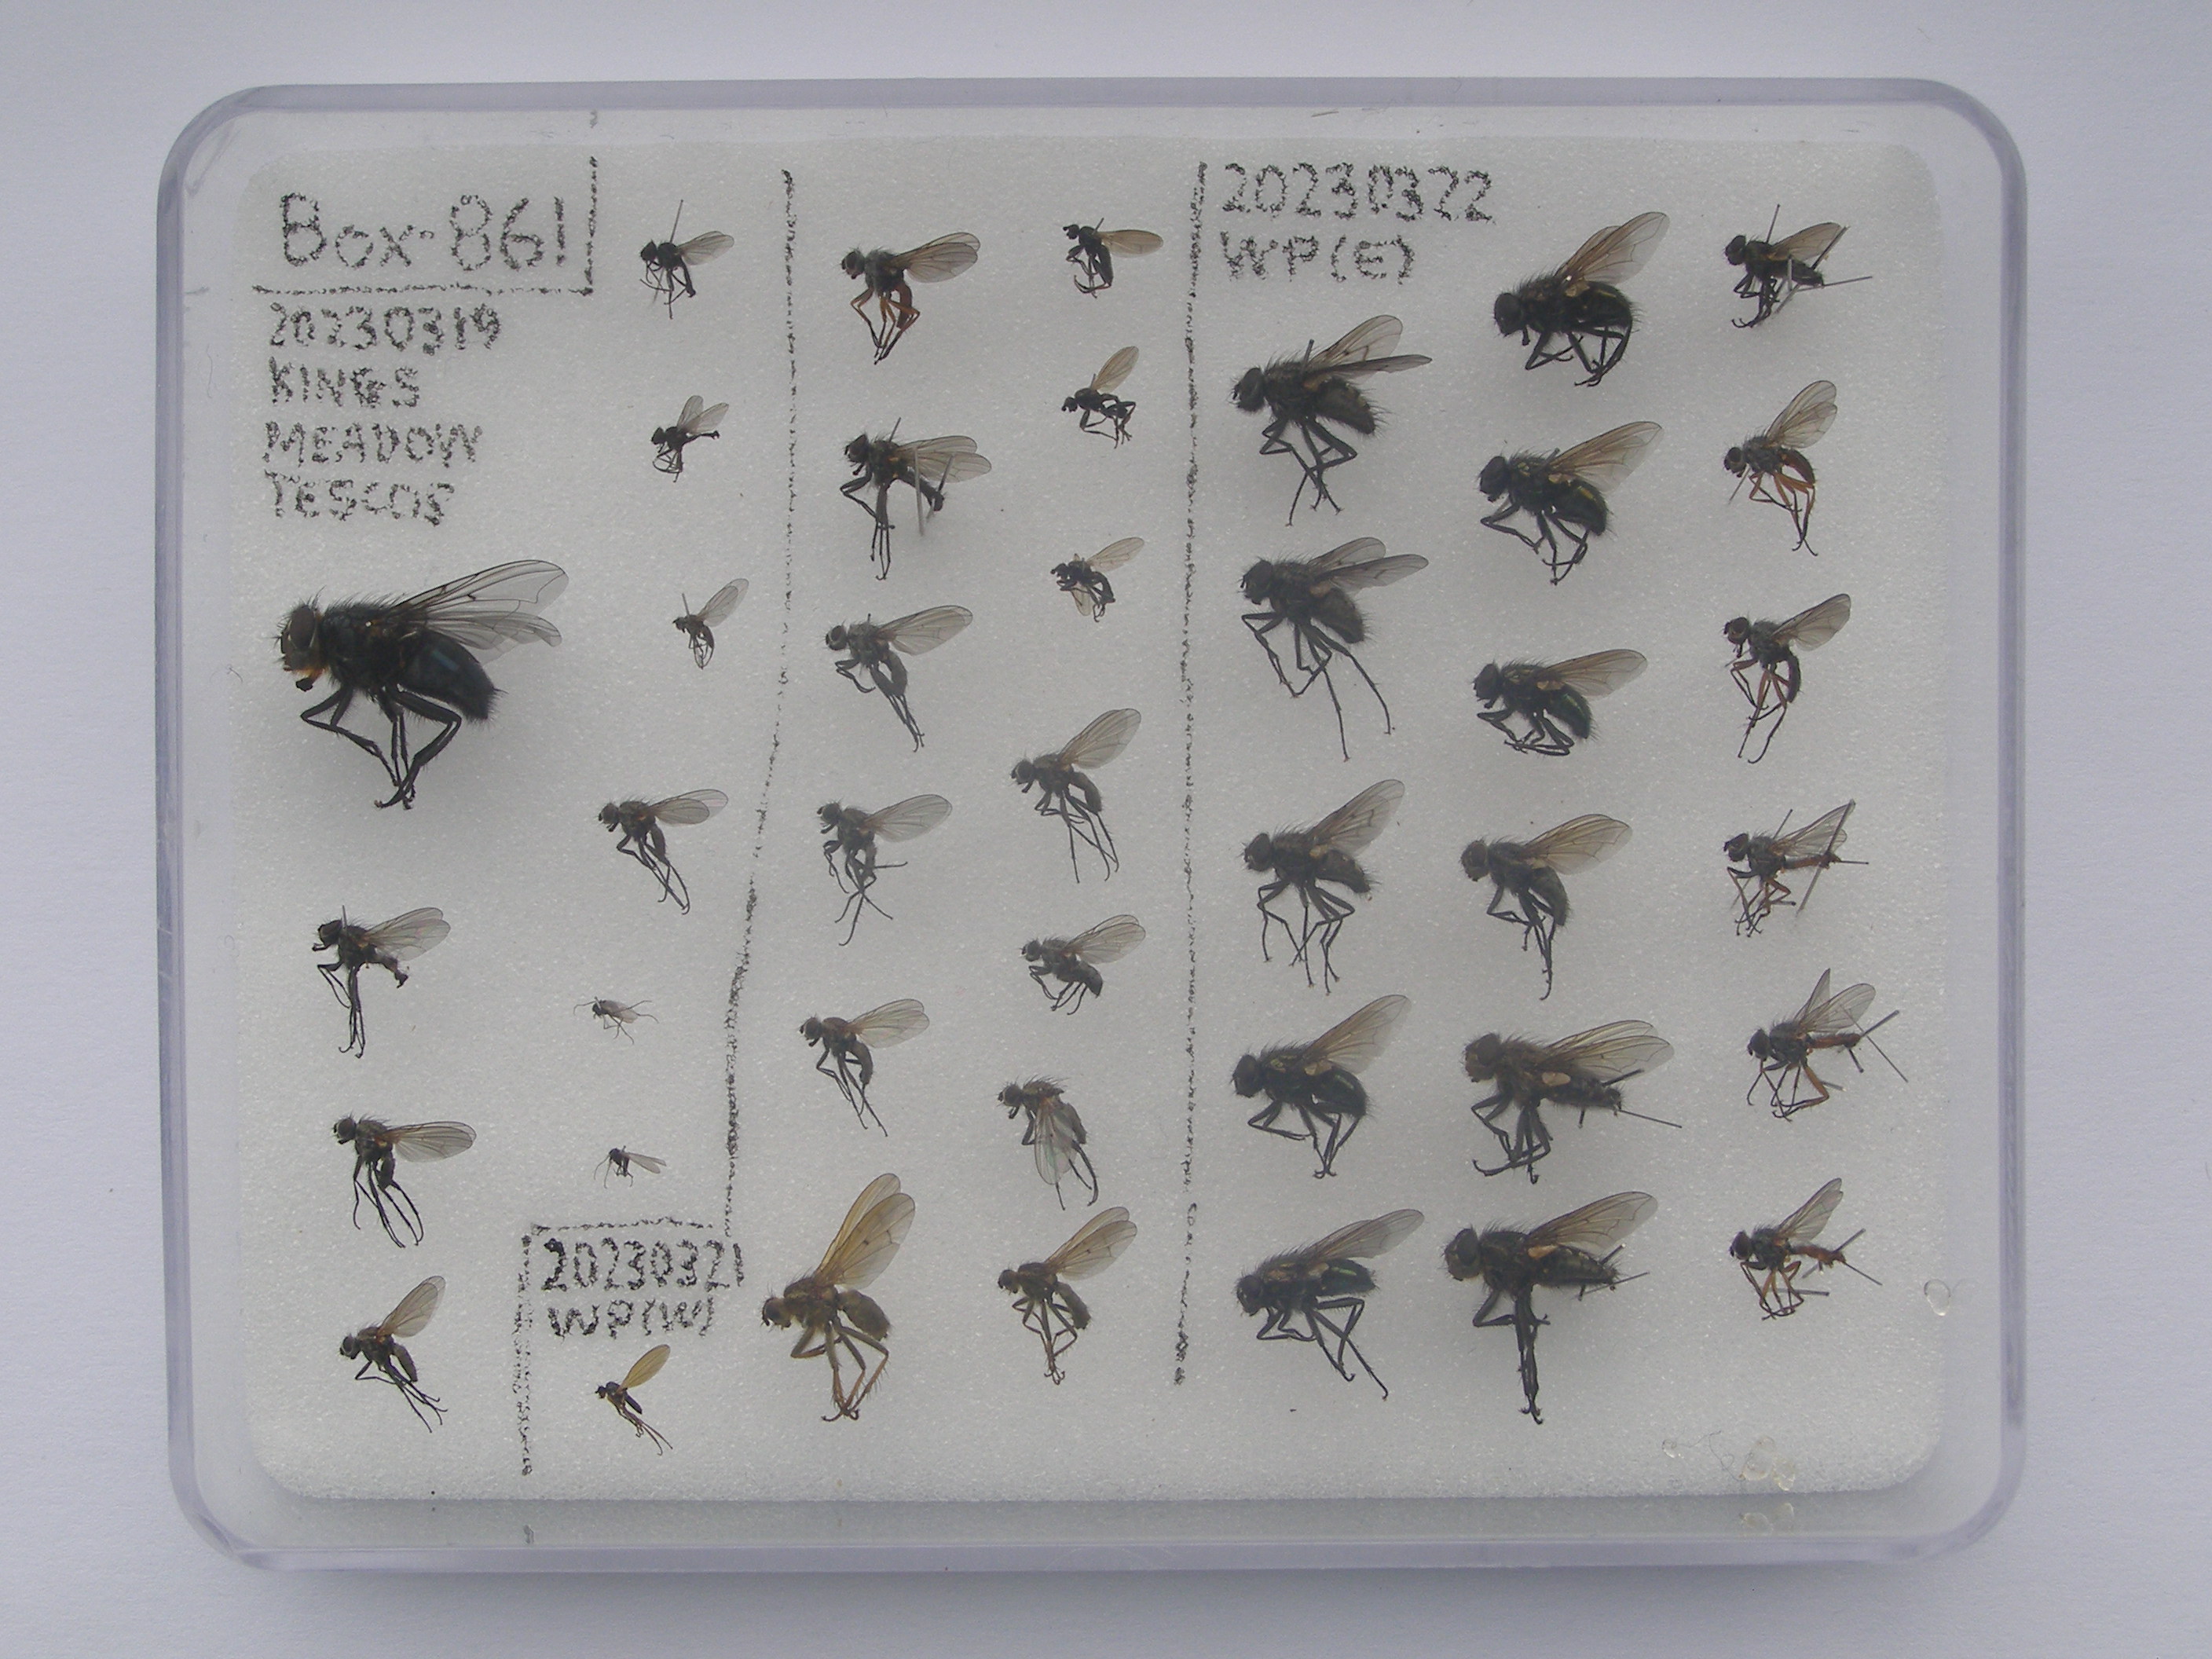 Box-861
20230319
KINGS
MEADOW
TESCOS
20230321
WP(W)
20230322
WP(E)